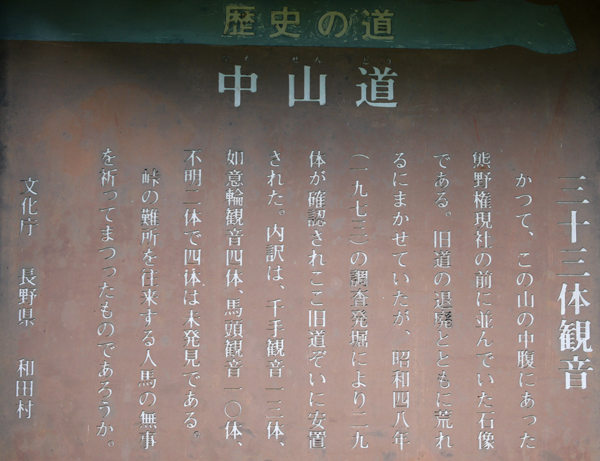 歴史の道
中山道
三十三体観音
かつて、この山の中腹にあった
熊野権現社の前に並んでいた石像
である。旧道の退廃とともに荒れ
るにまかせていたが、昭和四八年
（一九七三）の調査発掘により二九
体が確認されここ旧道ぞいに安置
された。内訳は、千手観音一三体、
如意輪観音四体、馬頭観音一〇体、
不明二体で四体は未発見である。
峠の難所を往来する人馬の無事
を祈ってまつったものであろうか。
文化庁 長野県 和田村